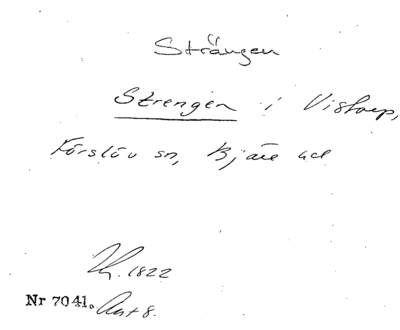 Strängen
Strengen i Vistorp,
Förslöv sn, Bjäre hd
1822
Nr 7041. Akt 8.